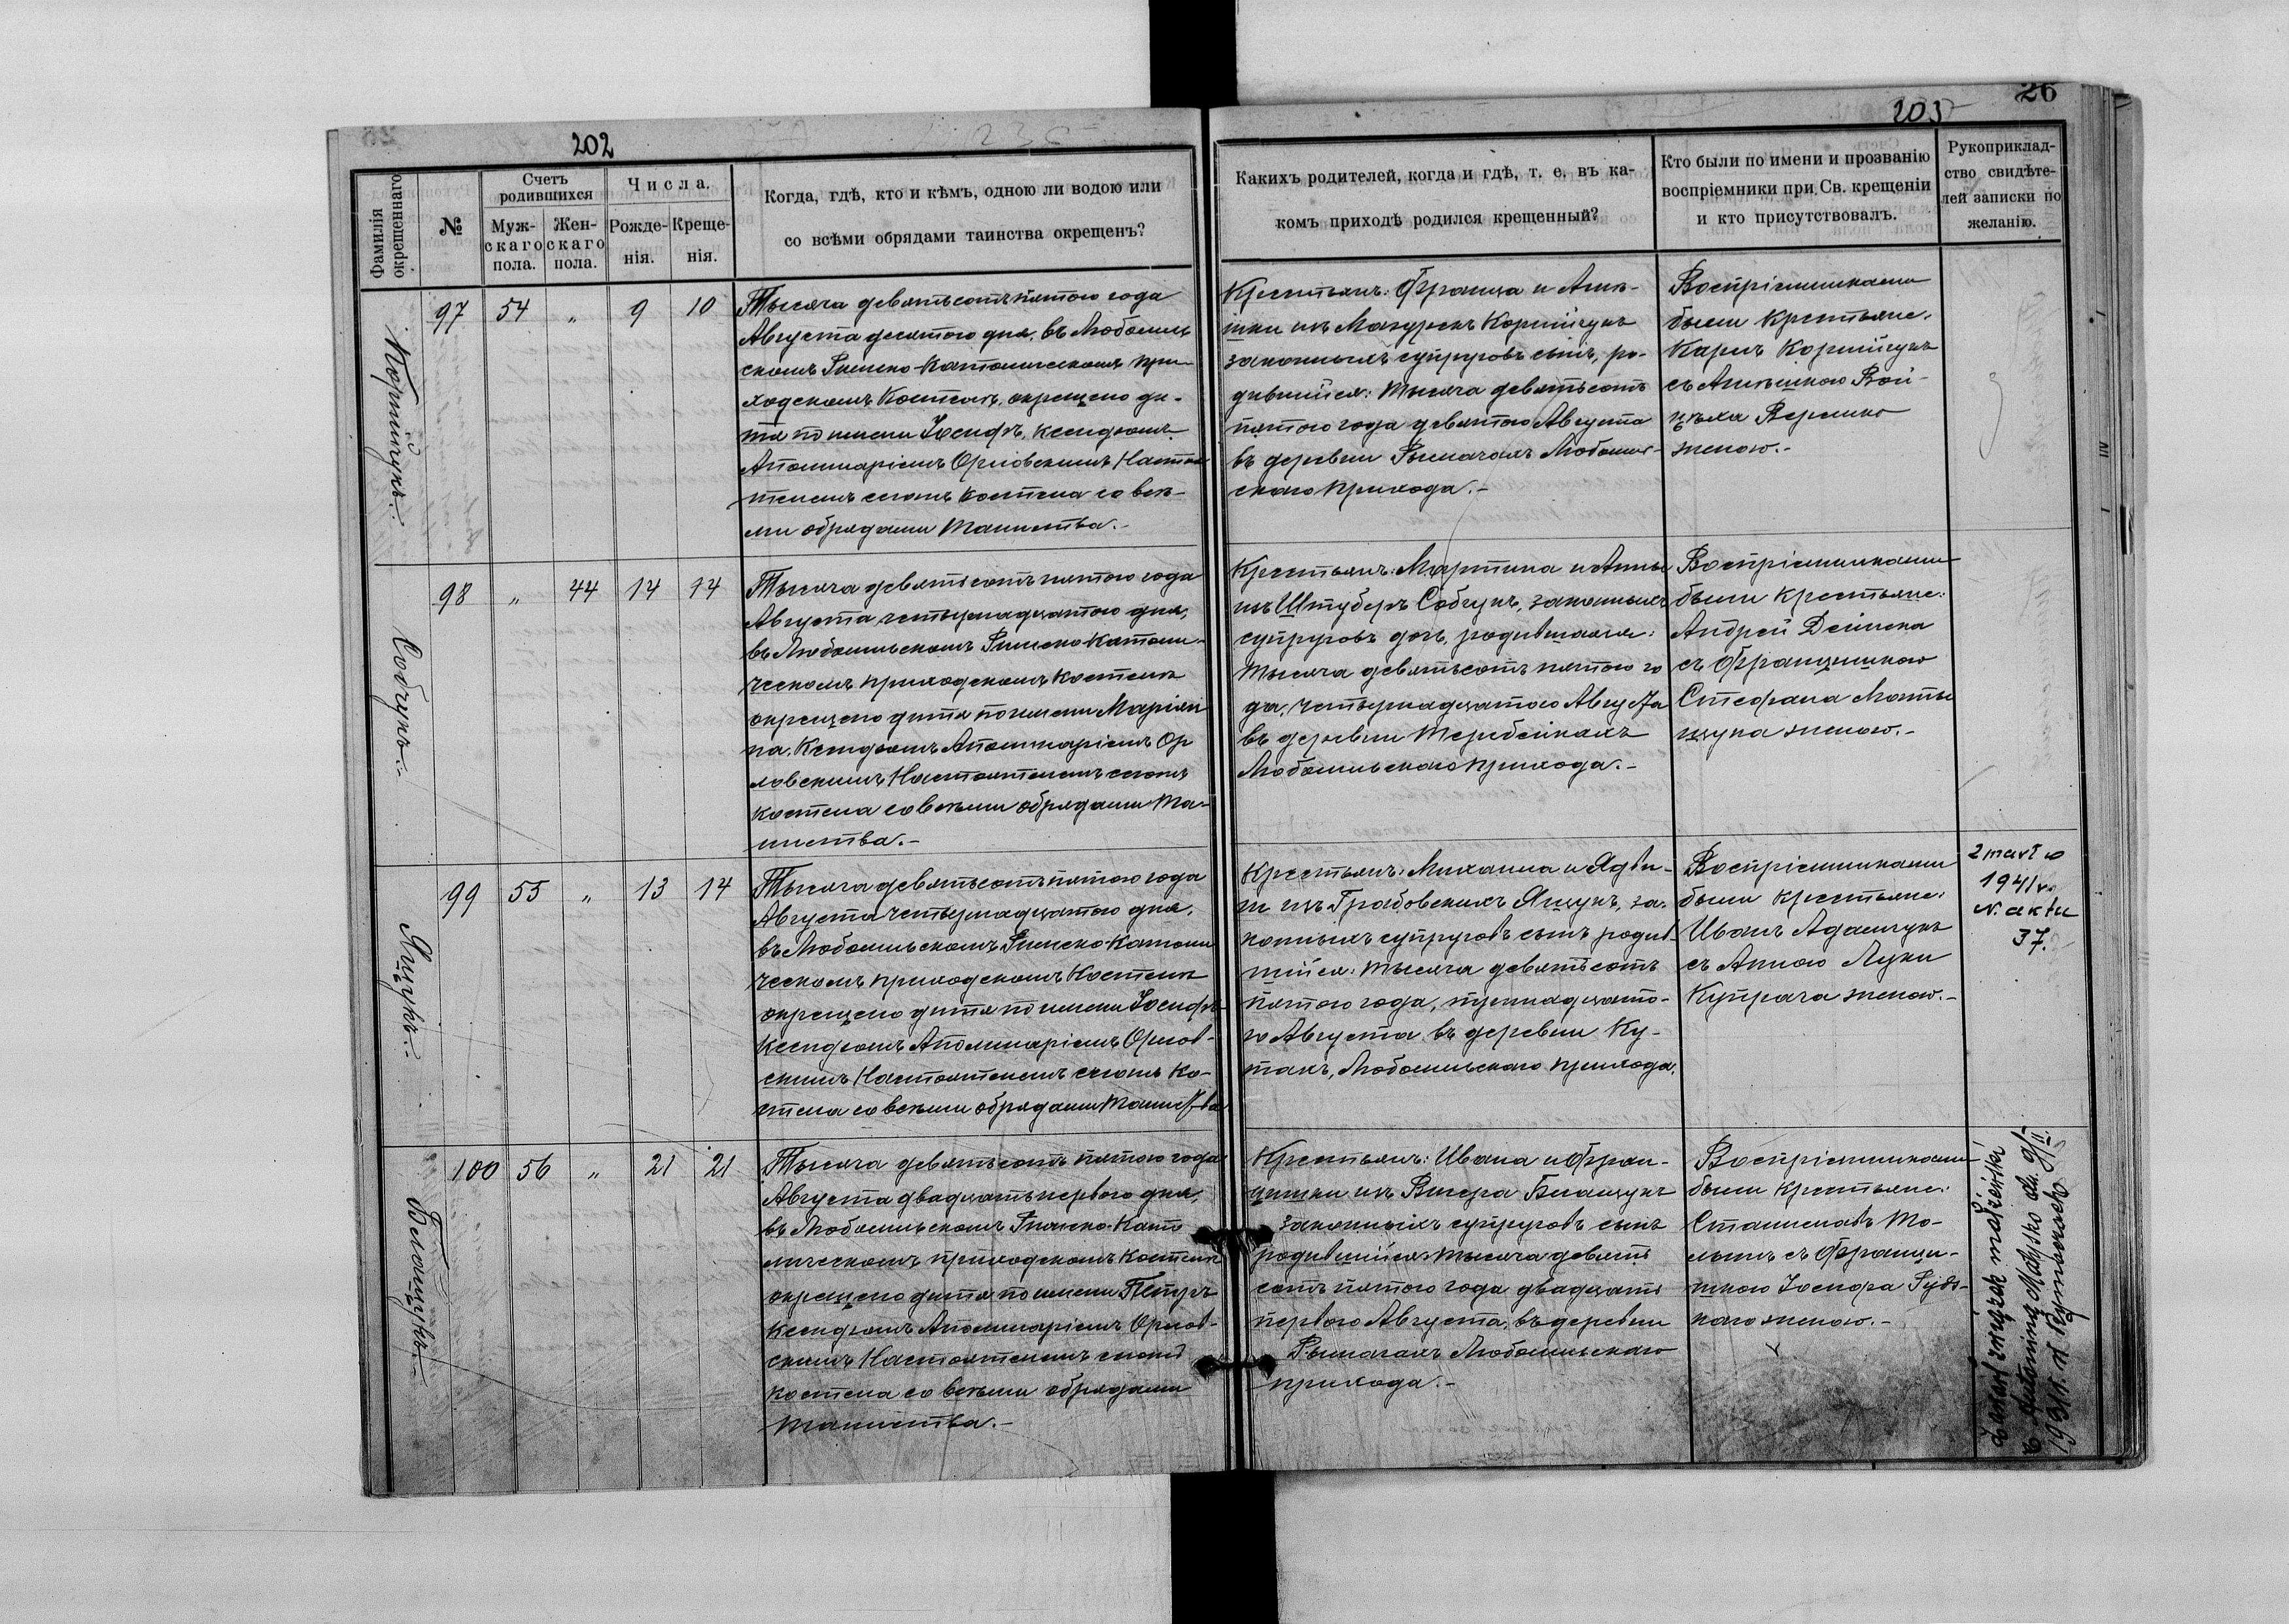 202
Фамилія окрещеннаго
№
Счетъ родившихся
Муж-
скаго
пола.
Жен-
скаго
пола.
Числа.
Рожде-
нія.
Креще-
нія.
Когда, гдѣ, кто и кѣмъ, одною ли водою или
со всѣми обрядами таинства окрещенъ?
26
203
Какихъ родителей, когда и гдѣ, т. е. въ ка-
комъ приходѣ родился крещенный?
Кто были по имени и прозванію
воспріемники при Св. крещеніи
и кто присутствовалъ.
Рукоприклад-
ство свидѣте-
лей записки по
желанію.
97 54 „ 9 10
Тысяча девятьсотъ пятого года
Августа десятого дня, въ Любомль
скомъ Римско-Католическомъ при-
ходскомъ Костелѣ, окрещено ди-
тя по имени Іосифъ, Ксендзомъ
Аполинаріемъ Орловскимъ Настоя
телемъ сегожъ костела со всѣ-
ми обрядами Таинства.-
Крестьянъ: Франца и Анѣ-
изъ Мазурекъ
законныхъ супруговъ сынъ, ро-
дившійся: Тысяча девятьсотъ
пятого года девятого Августа
въ деревни Рымачахъ Любомль-
скаго прихода.-
Воспріемниками
были крестьяне:
жено ю.-
98 „ 44 14 14
Собчукъ.
Тысяча девятьсотъ пятого года
Августа четырнадцатого дня,
въ Любомльскомъ Римско-Католи-
ческомъ приходскомъ Костелѣ
окрещено дитя по имени Маріян
на, Ксендзомъ Аполинаріемъ Ор
ловскимъ Настоятелемъ сегожъ
костела со всѣми обрядами Та-
инства.-
Крестьянъ: Мартина и Анны
изъ Штуберъ Собчукъ, законныхъ
супруговъ дочь, родившаяся:
Тысяча девятьсотъ пятого го
да, четырнадцатого Августа
въ деревни Теребейкахъ
Любомльскаго прихода.-
Воспріемниками
были крестьяне:
Андрей
съ Францишкою
Стефана
женою.-
99 55 „ 13 14
Яцукъ.
Тысяча девятьсотъ пятого года
Августа четырнадцатого дня,
въ Любомльскомъ Римско-Католи
ческомъ приходскомъ Костелѣ
окрещено дитя по имени Іосифъ
Ксендзомъ Аполинаріемъ Орлов-
скимъ Настоятелемъ сегожъ Ко-
стела со всѣми обрядами Таинства
Крестьянъ: Михаила и Ядви-
ги изъ Грабовскихъ Яцукъ, за-
конныхъ супруговъ сынъ родив-
шійся: Тысяча девятьсотъ
пятого года, тринадцато-
го Августа въ деревни Ку-
тахъ, Любомльскаго прихода.
Воспріемниками
были крестьяне:
Иванъ Адамчукъ
съ Анною Луки
Купрача женою.-
2 mart
1941 r.
N. aktu
37.
100 56 „ 21 21
Тысяча девятьсотъ пятого года
Августа двадцать первого дня,
въ Любомльскомъ Римско-Като
лическомъ приходскомъ Костелѣ
окрещено дитя по имени Петръ
Ксендзомъ Аполинаріемъ Орлов-
скимъ Настоятелемъ сегожъ
костела со всѣми обрядами
Таинства.-
Крестьянъ: Ивана и Фран-
цишки изъ
законныхъ супруговъ сынъ
родившійся: Тысяча девять
сотъ пятого года двадцать
первого Августа, въ деревни
Рымачахъ Любомльскаго
прихода.-
Воспріемниками
были крестьяне:
Станиславъ
съ Францы-
шкою Іосифа
женою.-
Zawarł związek małżeński
z Antoniną dn. 9/II
1931 r. w Rymaczach